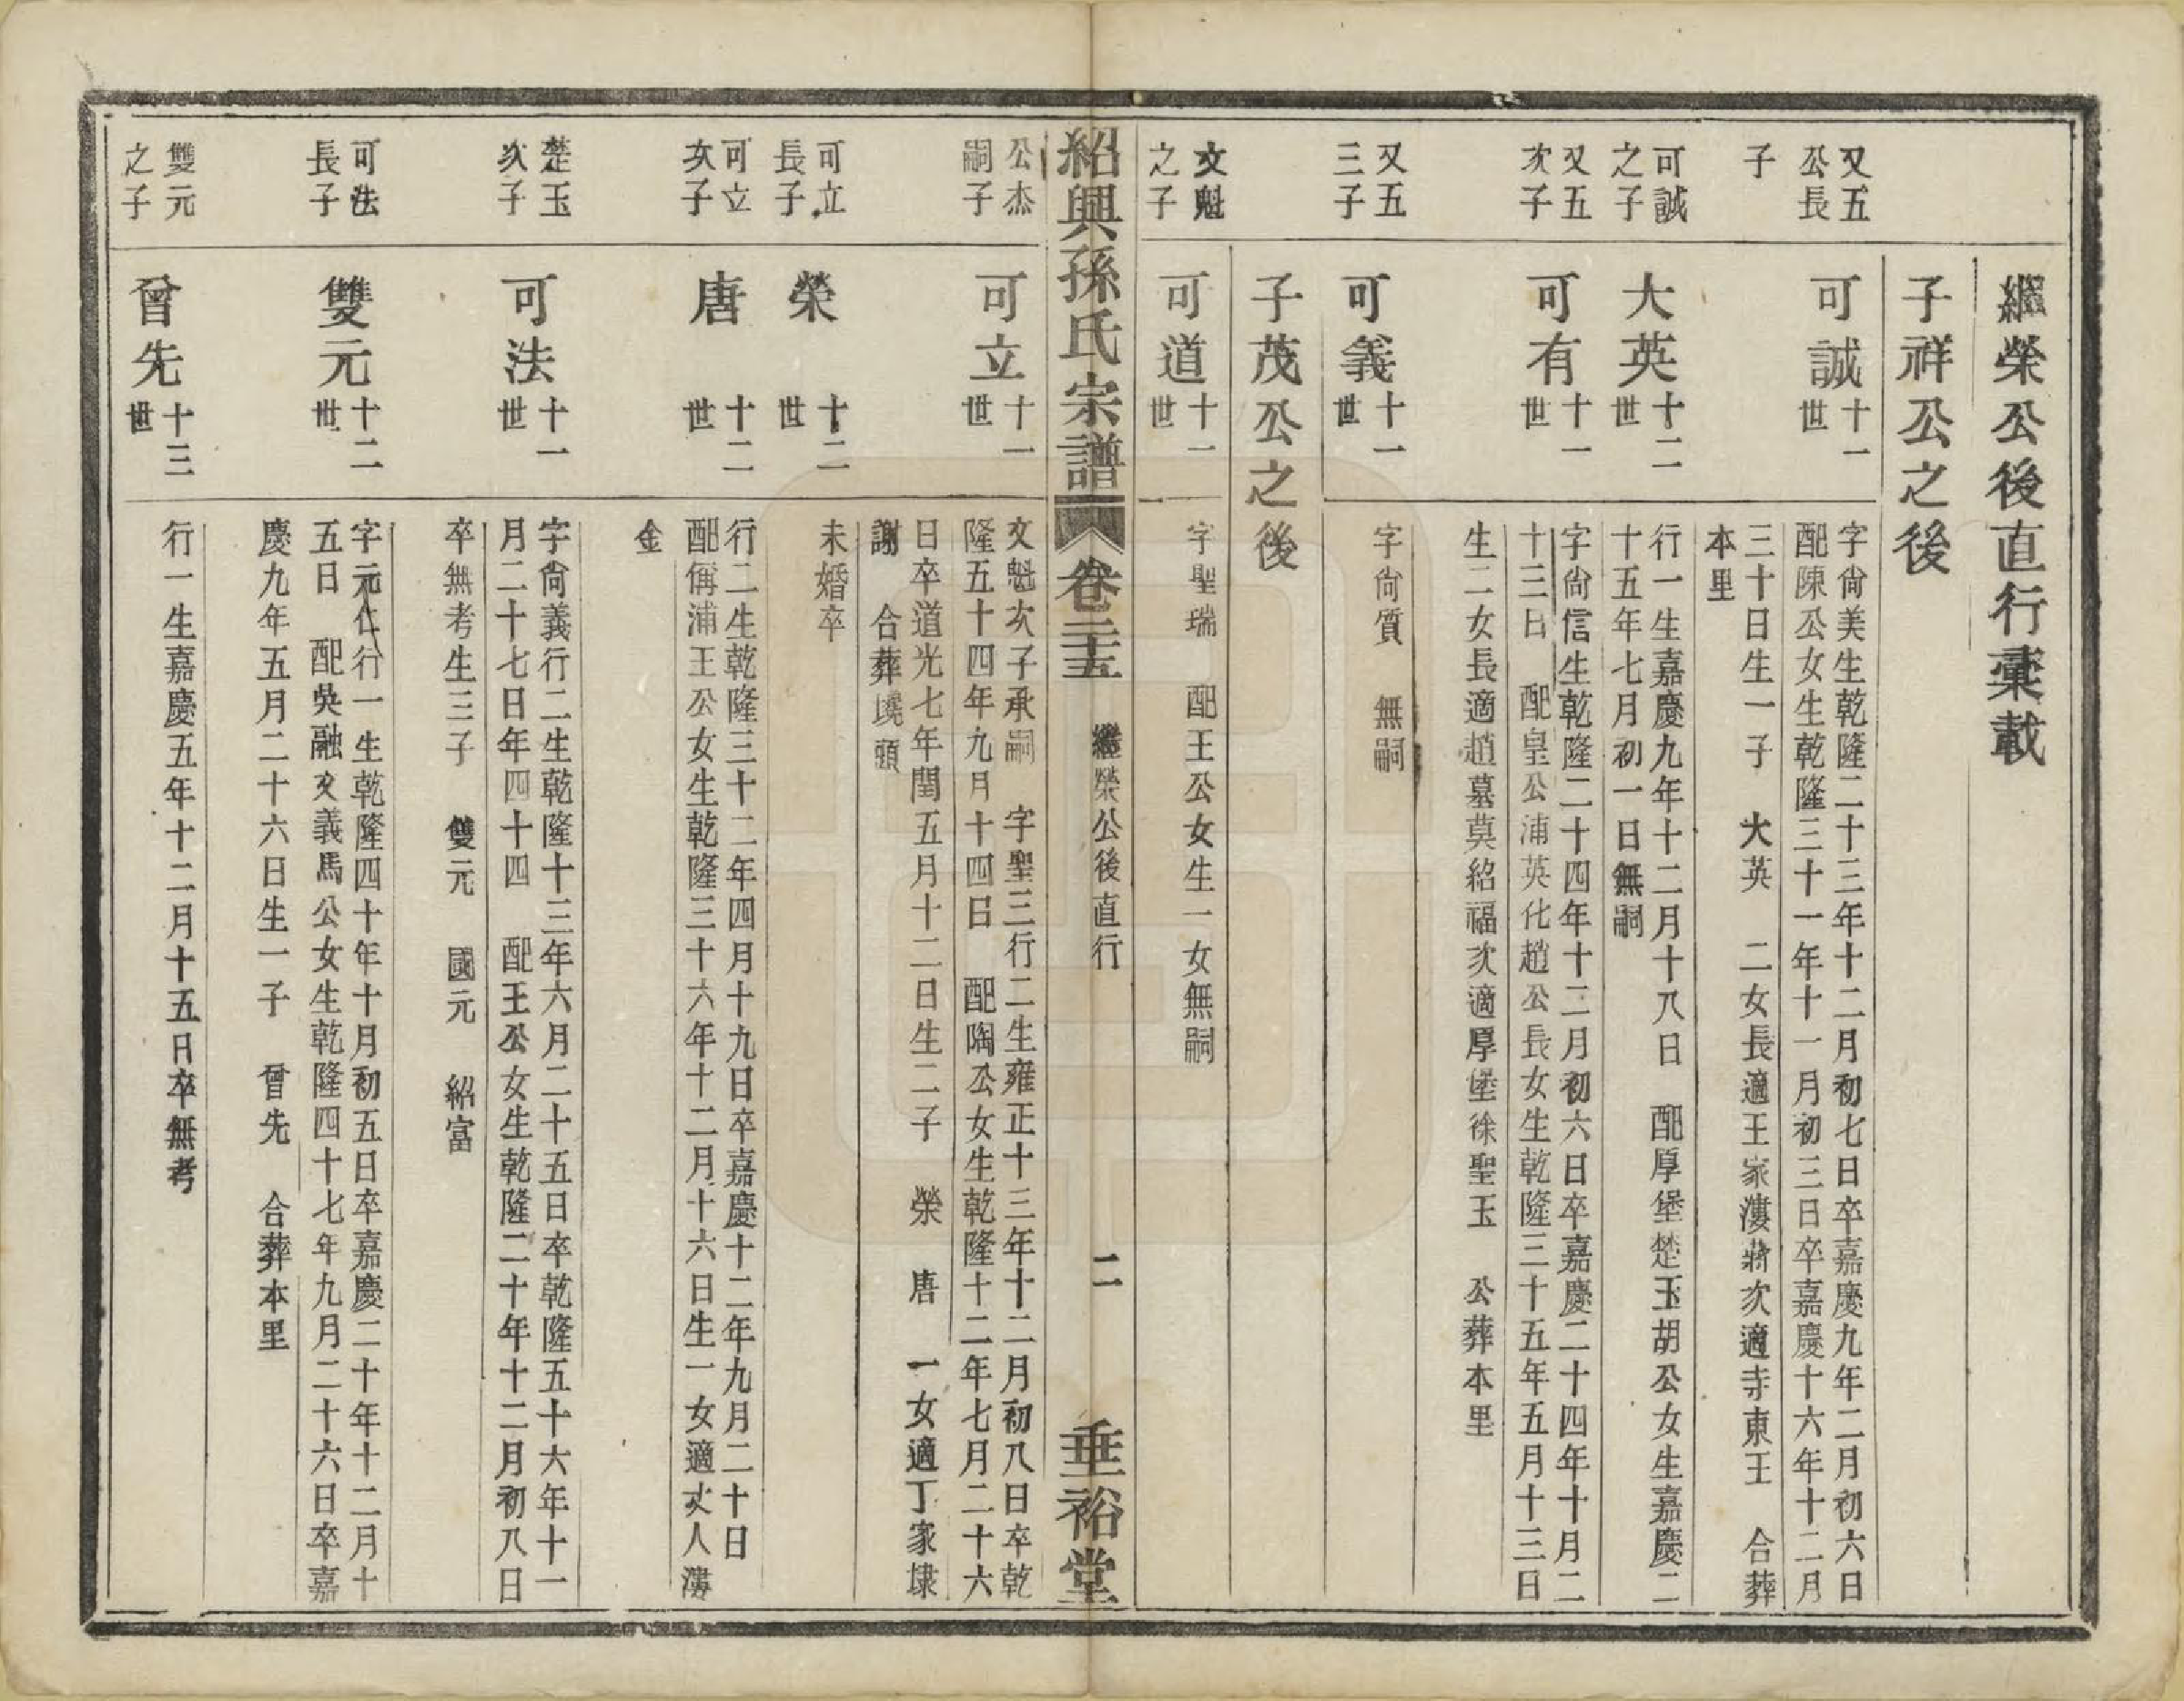 繼榮公後直行彙載
子祥公之後
又五公長子
可誠 十一世
字尙美生乾隆二十三年十二月初七日卒嘉慶九年二月初六日
配陳公女生乾隆三十一年十一月初三日卒嘉慶十六年十二月
三十日生一子 大英 二女長適王家漊蔣次適寺東王 合葬
本里
可誠之子
大英 十二世
行一生嘉慶九年十二月十八日 配厚堡楚玉胡公女生嘉慶二
十五年七月初一日無嗣
又五次子
可有 十一世
字尙信生乾隆二十四年十二月初六日卒嘉慶二十四年十月二
十三日 配皇公浦英化趙公長女生乾隆三十五年五月十三日
生二女長適趙墓莫紹福次適厚堡徐聖玉 公葬本里
又五三子
可義 十一世
字尙質 無嗣
子茂公之後
文魁之子
可道 十一世
字聖瑞 配王公女生一女無嗣
紹興孫氏宗譜 卷二十五 繼榮公後直行 二 垂裕堂
公杰嗣子
可立 十一世
文魁次子承嗣 字聖三行二生雍正十三年十二月初八日卒乾
隆五十四年九月十四日 配陶公女生乾隆十二年七月二十六
日卒道光七年閏五月十二日生二子 榮 唐 一女適丁家埭
謝 合葬墝頭
可立長子
榮 十二世
未婚卒
可立次子
唐 十二世
行二生乾隆三十二年四月十九日卒嘉慶十二年九月二十日
配偁浦王公女生乾隆三十六年十二月十六日生一女適丈人漊
金
楚玉次子
可法 十一世
字尙義行二生乾隆十三年六月二十五日卒乾隆五十六年十一
月二十七日年四十四 配王公女生乾隆二十年十二月初八日
卒無考生三子 雙元 國元 紹富
可法長子
雙元 十二世
字元仁行一生乾隆四十年十月初五日卒嘉慶二十年十二月十
五日 配吳融文義馬公女生乾隆四十七年九月二十六日卒嘉
慶九年五月二十六日生一子 曾先 合葬本里
雙元之子
曾先 十三世
行一生嘉慶五年十二月十五日卒無考